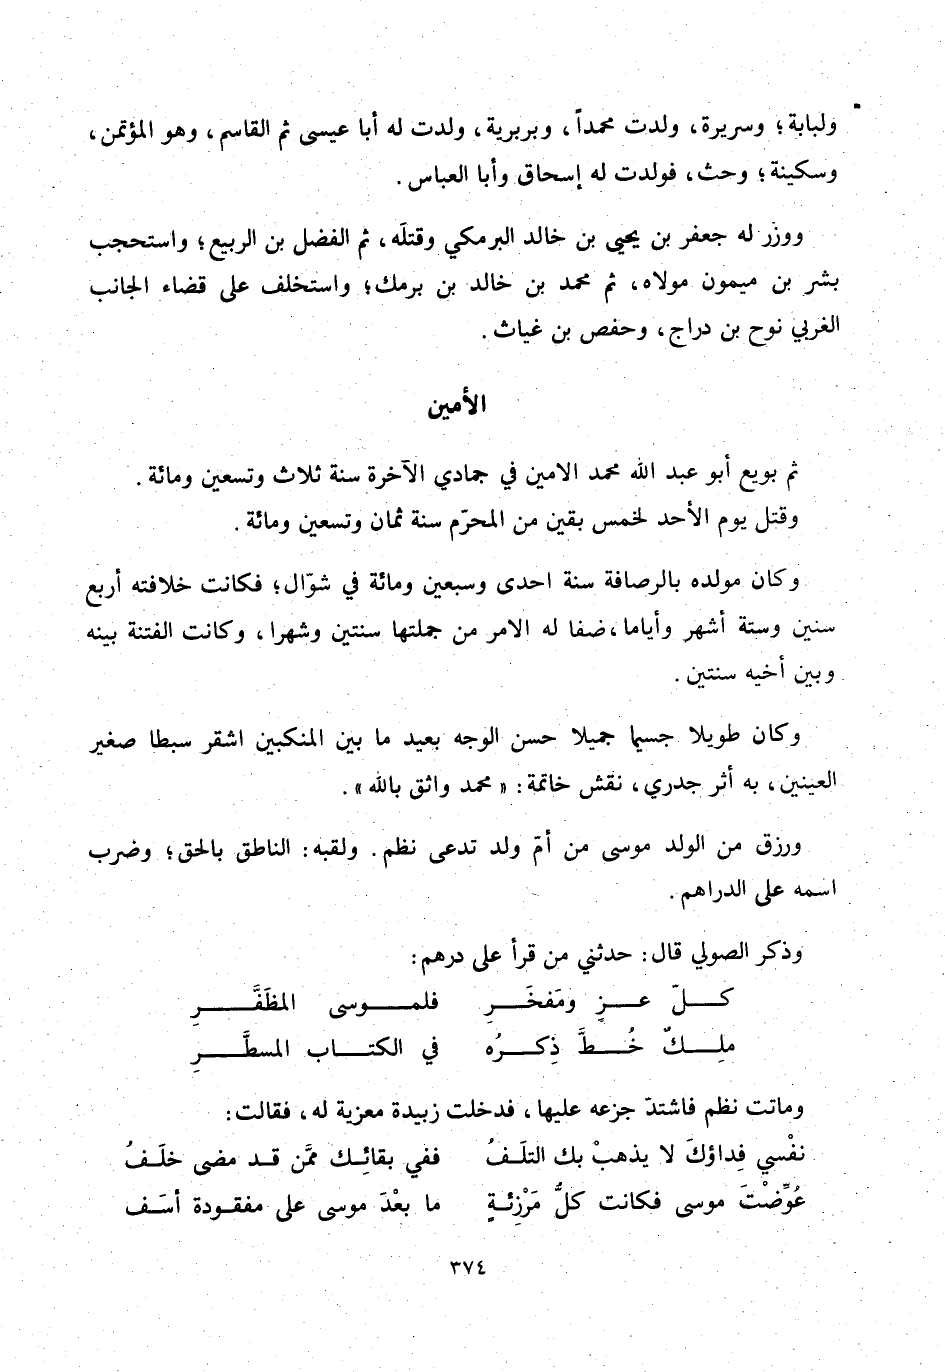 ولبابة؛ وسريرة، ولدت محمداً، وبربرية، ولدت له أبا عيسى ثم القاسم، وهو المؤتمن،
وسكينة؛ وحث، فولدت له إسحاق وأبا العباس.
ووزر له جعفر بن يحيى بن خالد البرمكي وقتلَه، ثم الفضل بن الربيع؛ واستحجب
بشر بن ميمون مولاه، ثم محمد بن خالد بن برمك؛ واستخلف على قضاء الجانب
الغربي نوح بن دراج، وحفص بن غياث.
الأمين
ثم بويع أبو عبد الله محمد الامين في جمادي الآخرة سنة ثلاث وتسعين ومائة.
وقتل يوم الأحد لخمس بقين من المحرّم سنة ثمان وتسعين ومائة.
وكان مولده بالرصافة سنة احدى وسبعين ومائة في شوّال؛ فكانت خلافته أربع
سنين وستة أشهر وأياما، ضفا له الامر من جملتها سنتين وشهرا، وكانت الفتنة بينه
وبين أخيه سنتين.
وكان طويلا جسيما جميلا حسن الوجه بعيد ما بين المنكبين اشقر سبطا صغير
العينين، به أثر جدري، نقش خاتمة: « محمد واثق بالله ».
ورزق من الولد موسى من أمّ ولد تدعى نظم. ولقبه: الناطق بالحق؛ وضرب
اسمه على الدراهم.
وذكر الصولي قال: حدثني من قرأ على درهم:
كـــلّ عـــزٍ ومَفخَـــرِ فلمـــوسى المظَفَّـــرِ
ملِـــكٌ خُـــطَّ ذِكـــرُه في الكتـــاب المسطَّـــرِ
وماتت نظم فاشتدّ جزعه عليها، فدخلت زبيدة معزية له، فقالت:
نفْسي فِداؤكَ لا يذهبْ بك التلَـفُ ففي بقائِـك ممَّن قـد مضى خلَـفُ
عُوِّضْتَ موسى فكانت كلُّ مَرْزِئـةٍ ما بعْدَ موسى على مفقـودة أسَـف
٣٧٤